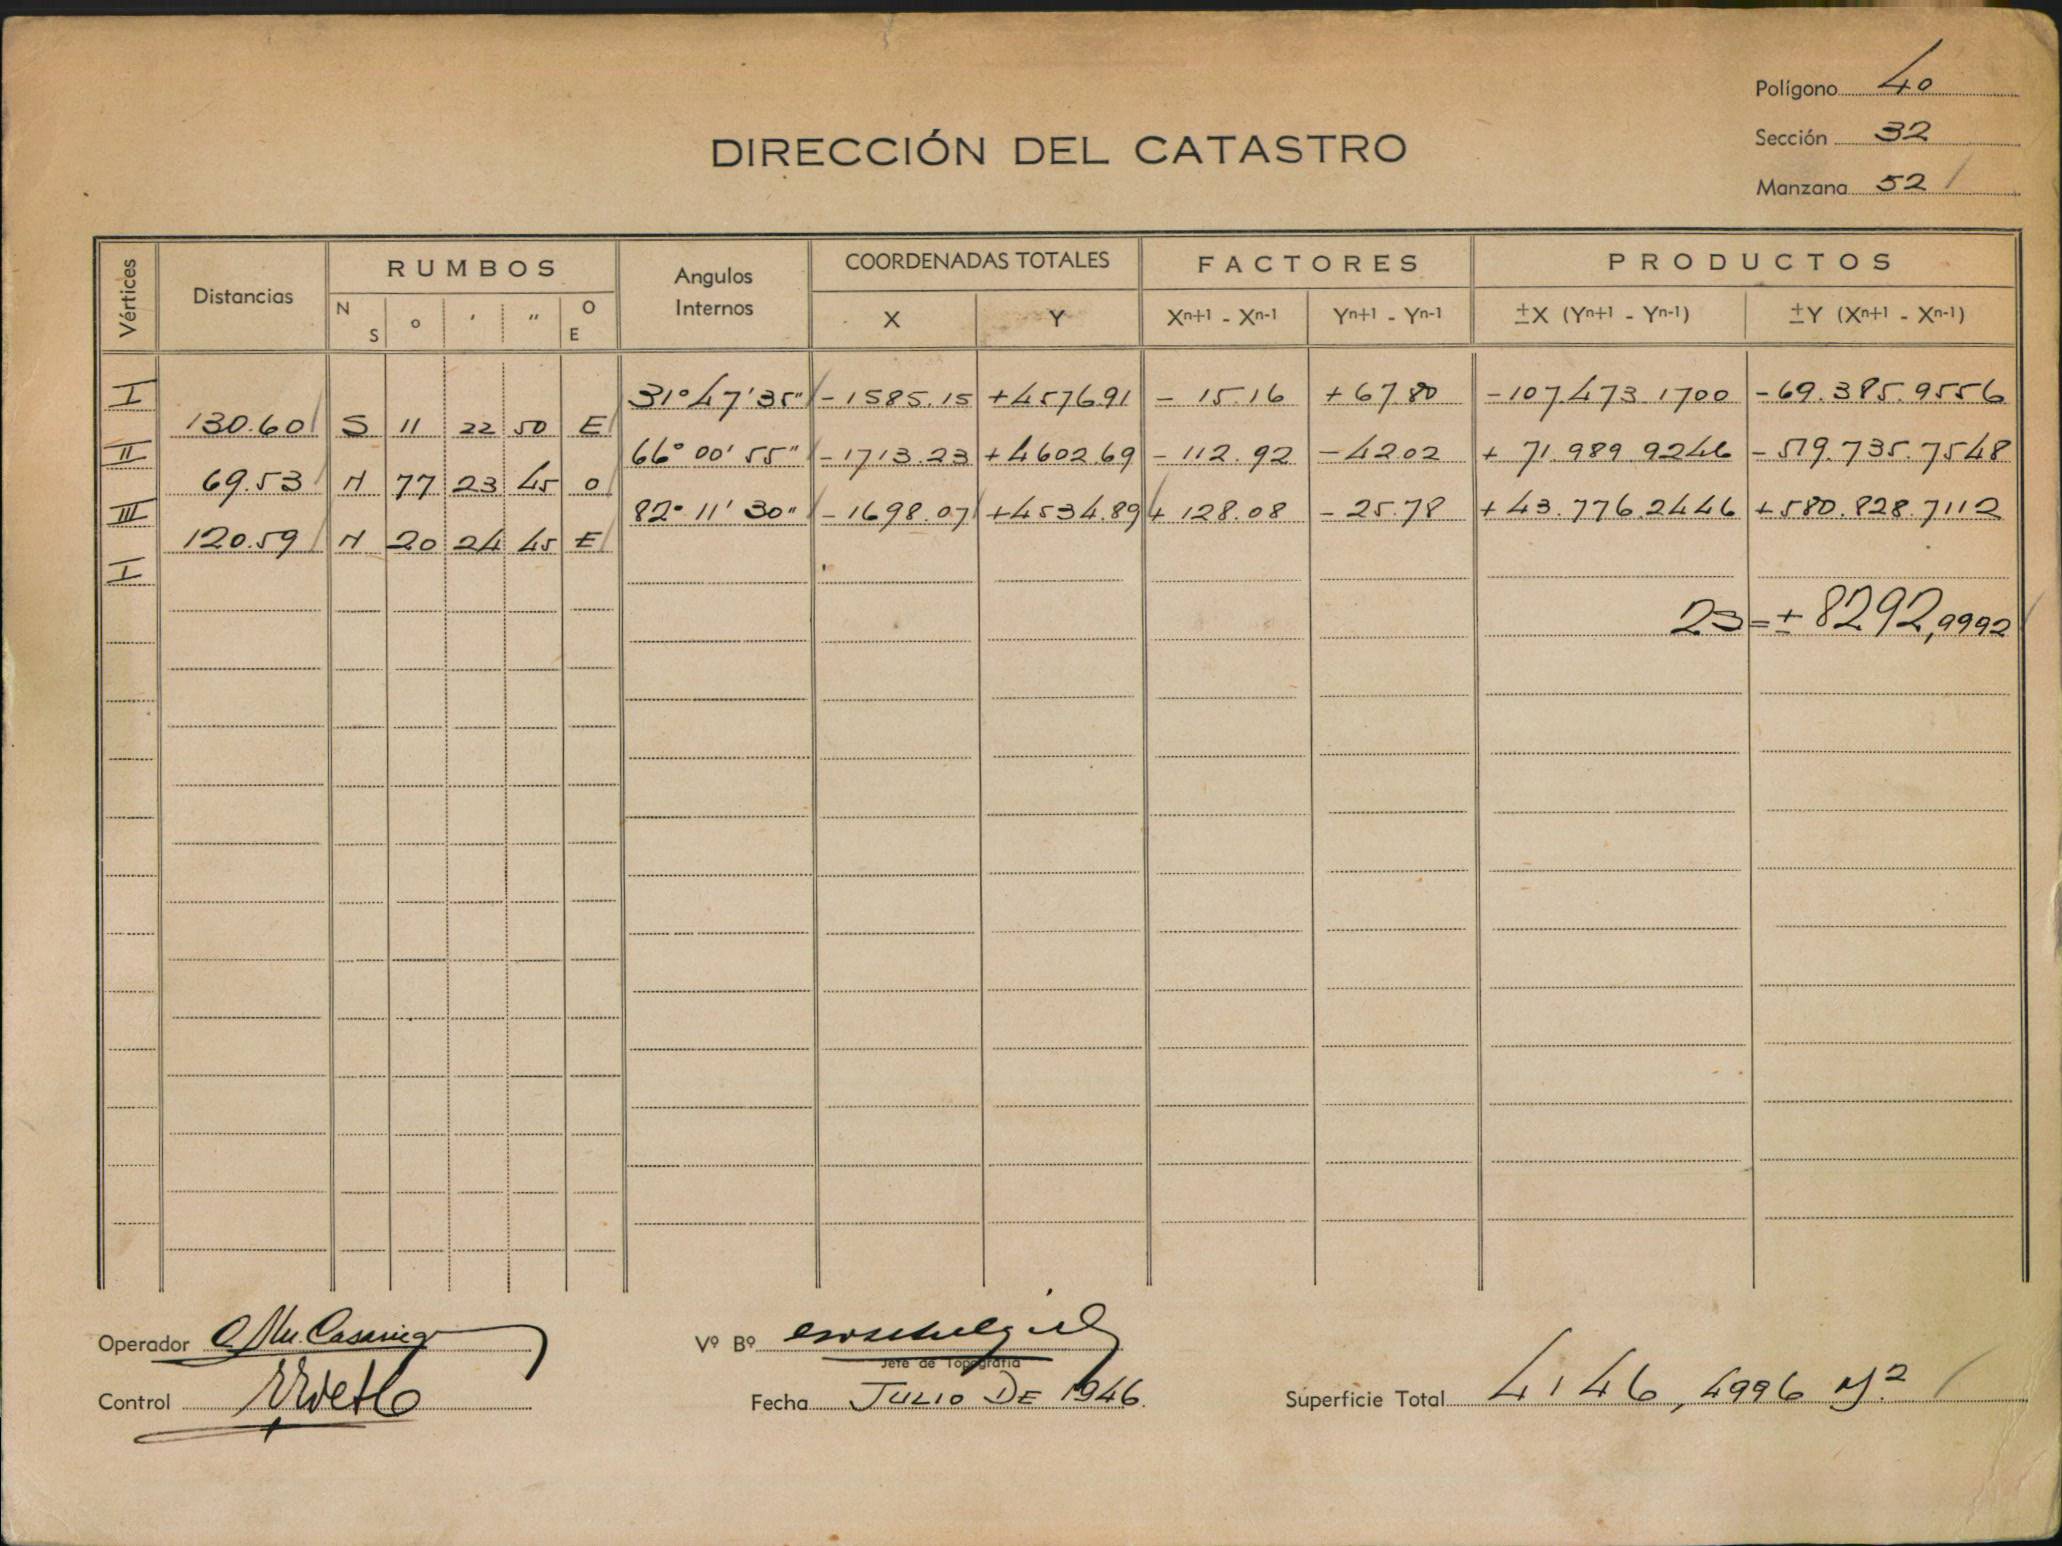 Polígono 40
DIRECCIÓN DEL CATASTRO
Sección 32
Manzana 52
Vértices Distancias RUMBOS Angulos Internos COORDENADAS TOTALES FACTORES PRODUCTOS
N S ° ' " O E X Y Xn+1 - Xn-1 Yn+1 - Yn-1 ±X (Yn+1 - Yn-1) ±Y (Xn+1 - Xn-1)
I 31° 47' 35" -1585.15 +4576.91 - 15.16 + 67.80 -107.473.1700 -69.385.9556
130.60 S 11 22 50 E
II 66° 00' 55" -1713.23 +4602.69 -112.92 -42.02 + 71.989.9246 -519.735.7548
69.53 N 77 23 45 O
III 82° 11' 30" -1698.07 +4534.89 + 128.08 - 25.78 +43.776.2446 +580.828.7112
120.59 N 20 24 45 E
I
2S = ± 8292,9992
Operador
Vº Bº
Jefe de Topografía
Control
Fecha JULIO DE 1946.
Superficie Total 4146,4996 M.²